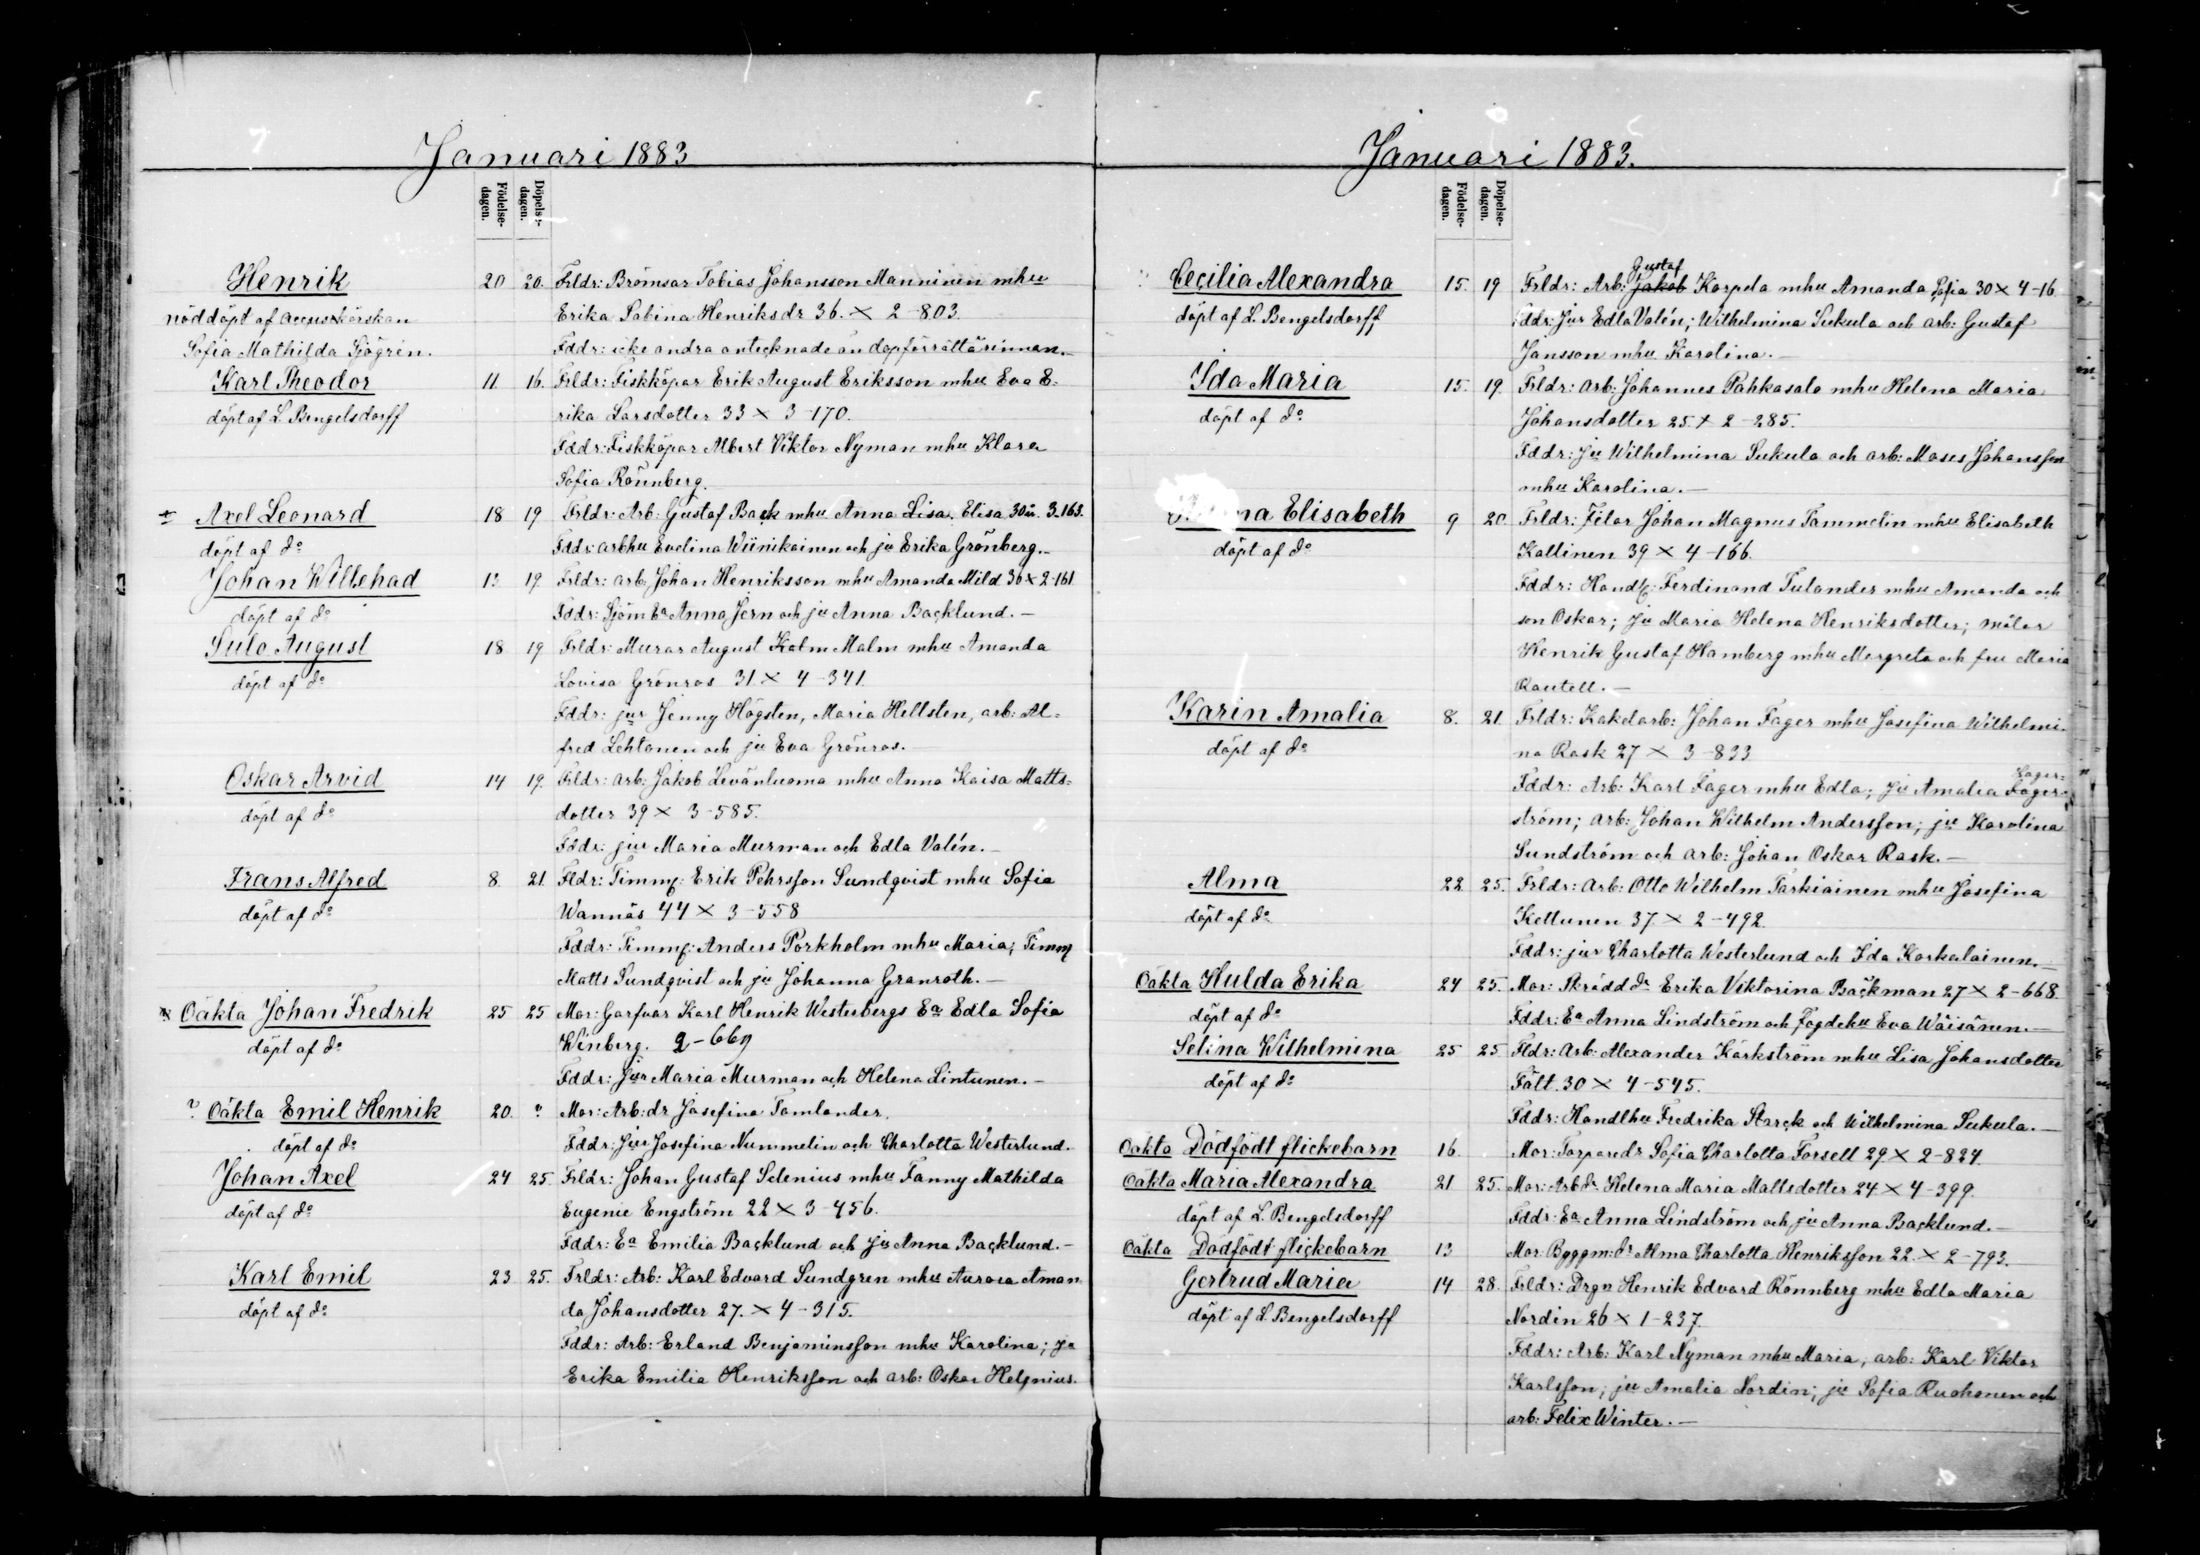 Januari 1883
Födelse-dagen.
Döpelse-dagen.
Henrik 20 20. Frldr: Bromsar Tobias Johansson Manninen mhu
nöddöpt af accuschörskan Erika Sabina Henriksdr 36. × 2-803.
Sofia Mathilda Sjögrén. Fddr: icke andra antecknade än dopförrättarinnan.-
Karl Theodor 11 16. Frldr: Fiskköpar Erik August Eriksson mhu Eva E-
döpt af L. Bengelsdorff rika Larsdotter 33 × 3-170.
Fddr: Fiskköpar Albert Viktor Nyman mhu Klara
Sofia Rönnberg.
Axel Leonard 18 19 Frldr: Arb: Gustaf Back mhu Anna Lisa Elisa 30 3-163.
döpt af do Fddr: arbhu Evelina Wiinikainen och ju Erika Grönberg.-
Johan Willehad 13 19 Frldr: arb: Johan Henriksson mhu Amanda Mild 36 × 2-161
döpt af do Fddr: Sjöm Ea Anna Jern och ju Anna Backlund.-
Sulo August 18 19 Frldr: Murar August Kalm Malm mhu Amanda
döpt af do Lovisa Grönros 31 × 4-341.
Fddr: jur Jenny Högsten, Maria Hellsten, arb: Al-
fred Lehtonen och ju Eva Grönros.-
Oskar Arvid 14 19. Frldr: arb: Jakob Levänluoma mhu Anna Kaisa Matts-
döpt af do dotter 39 × 3-585.
Fddr: jur Maria Murman och Edla Valén.-
Frans Alfred 8 21 Fldr: Timmm: Erik Pehrsson Sundqvist mhu Sofia
döpt af do Wannäs 44 × 3-558
Fddr: Timmm: Anders Porkholm mhu Maria; Timmm
Matts Sundqvist och ju Johanna Granroth.-
Oäkta Johan Fredrik 25 25 Mor: Garfvar Karl Henrik Westerbergs Ea Edla Sofia
döpt af do Winberg. 2-669
Fddr: Jur Maria Murman och Helena Lintunen.-
? Oäkta Emil Henrik 20 " Mor: Arb:dr Josefina Tamlander.
döpt af do Fddr: Jur Josefina Nummelin och Charlotta Westerlund.
Johan Axel 24 25. Frldr: Johan Gustaf Selenius mhu Fanny Mathilda
döpt af do Eugenie Engström 22 × 3-456.
Fddr: Ea Emilia Backlund och ju Anna Backlund.-
Karl Emil 23 25. Frldr: Arb: Karl Edvard Sundgren mhu Aurora Aman
döpt af do da Johansdotter 27. × 4-315.
Fddr: Arb: Erland Benjaminsson mhu Karolina; ju
Erika Emilia Henriksson och arb: Oskar Helenius.
Januari 1883.
Födelse-dagen.
Döpelse-dagen.
Gustaf
Cecilia Alexandra 15. 19 Frldr: Arb: Jakob Korpela mhu Amanda Sofia 30 × 4-16
döpt af L. Bengelsdorff Fddr: Jur Edla Valén; Wilhelmina Sukula och arb: Gustaf
Jansson mhu Karolina.-
Ida Maria 15. 19. Frldr: arb: Johannes Pahkasalo mhu Helena Maria
döpt af do Johansdotter 25 × 2-285.
Fddr: ju Wilhelmina Sukula och arb: Moses Johansson
mhu Karolina.-
na Elisabeth 9 20 Frldr: Filar Johan Magnus Tammelin mhu Elisabeth
döpt af do Kallinen 39 × 4-166.
Fddr: Handl: Ferdinand Tulander mhu Amanda och
son Oskar; ju Maria Helena Henriksdotter; målar
Henrik Gustaf Hamberg mhu Margreta och fru Maria
Rautell.-
Karin Amalia 8. 21 Frldr: Kakelarb: Johan Fager mhu Josefina Wilhelmi-
döpt af do na Rask 27 × 3-833
Fager-
Fddr: Arb: Karl Fager mhu Edla; ju Amalia Fager-
ström; arb: Johan Wilhelm Andersson; ju Karolina
Sundström och arb: Johan Oskar Rask.-
Alma 22 25. Frldr: arb: Otto Wilhelm Tarkiainen mhu Josefina
döpt af do Kettunen 37. × 2-492.
Fddr: jur Charlotta Westerlund och Ida Korkalainen.-
Oäkta Hulda Erika 24 25. Mor: Skräddda Erika Viktorina Backman 27 × 2-668.
döpt af do Fddr: Ea Anna Lindström och Fogdehu Eva Wäisänen.-
Selina Wilhelmina 25 25 Fldr: Arb: Alexander Kärkström mhu Lisa Johansdotter
döpt af do Fält. 30 × 4-545.
Fddr: Handlhu Fredrika Starck och Wilhelmina Sukula.-
Oäkta Dödfödt flickebarn 16. Mor: Torparedr Sofia Charlotta Forsell 29 × 2-824.
Oäkta Maria Alexandra 21 25. Mor: Arbda Helena Maria Mattsdotter 24 × 4-399.
döpt af L. Bengelsdorff Fddr: Ea Anna Lindström och ju Anna Backlund.-
Oäkta Dödfödt flickebarn 13 Mor: Byggm:dr Alma Charlotta Henriksson 22. × 2-793.
Gertrud Maria 14 28. Frldr: Drgn Henrik Edvard Rönnberg mhu Edla Maria
döpt af L. Bengelsdorff Nordin 26 × 1-237.
Fddr: Arb: Karl Nyman mhu Maria, arb: Karl Viktor
Karlsson; ju Amalia Nordin; ju Sofia Ruohonen och
arb: Felix Winter.-